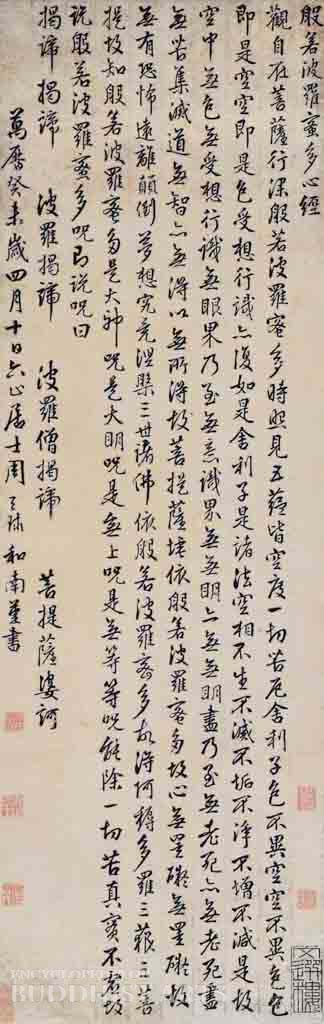 般若波羅蜜多心經
觀自在菩薩行深般若波羅蜜多時照見五蘊皆空度一切苦厄舍利子色不異空空不異色色
即是空空即是色受想行識亦復如是舍利子是諸法空相不生不滅不垢不淨不增不減是故
空中無色無受想行識無眼界乃至無意識界無無明亦無無明盡乃至無老死亦無老死盡
無苦集滅道無智亦無得以無所得故菩提薩埵依般若波羅蜜多故心無罣礙無罣礙故
無有恐怖遠離顛倒夢想究竟涅槃三世諸佛依般若波羅蜜多故得阿耨多羅三藐三菩
提故知般若波羅蜜多是大神咒是大明咒是無上咒是無等等咒能除一切苦真實不虛故
說般若波羅蜜多咒即說咒曰
揭諦揭諦 波羅揭諦 波羅僧揭諦 菩提薩婆訶
萬曆癸未歲四月十日六止居士周天球和南謹書
ENCYCLOPEDIA OF
BUDDHIST ARTS